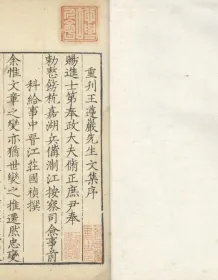 重刊王遵巖先生文集序
賜進士第奉政大夫脩正庶尹奉
勅整飭杭嘉湖兵備浙江按察司僉事前
科給事中晉江莊國禎撰
余惟文章之變亦猶世變之推遷然忠變